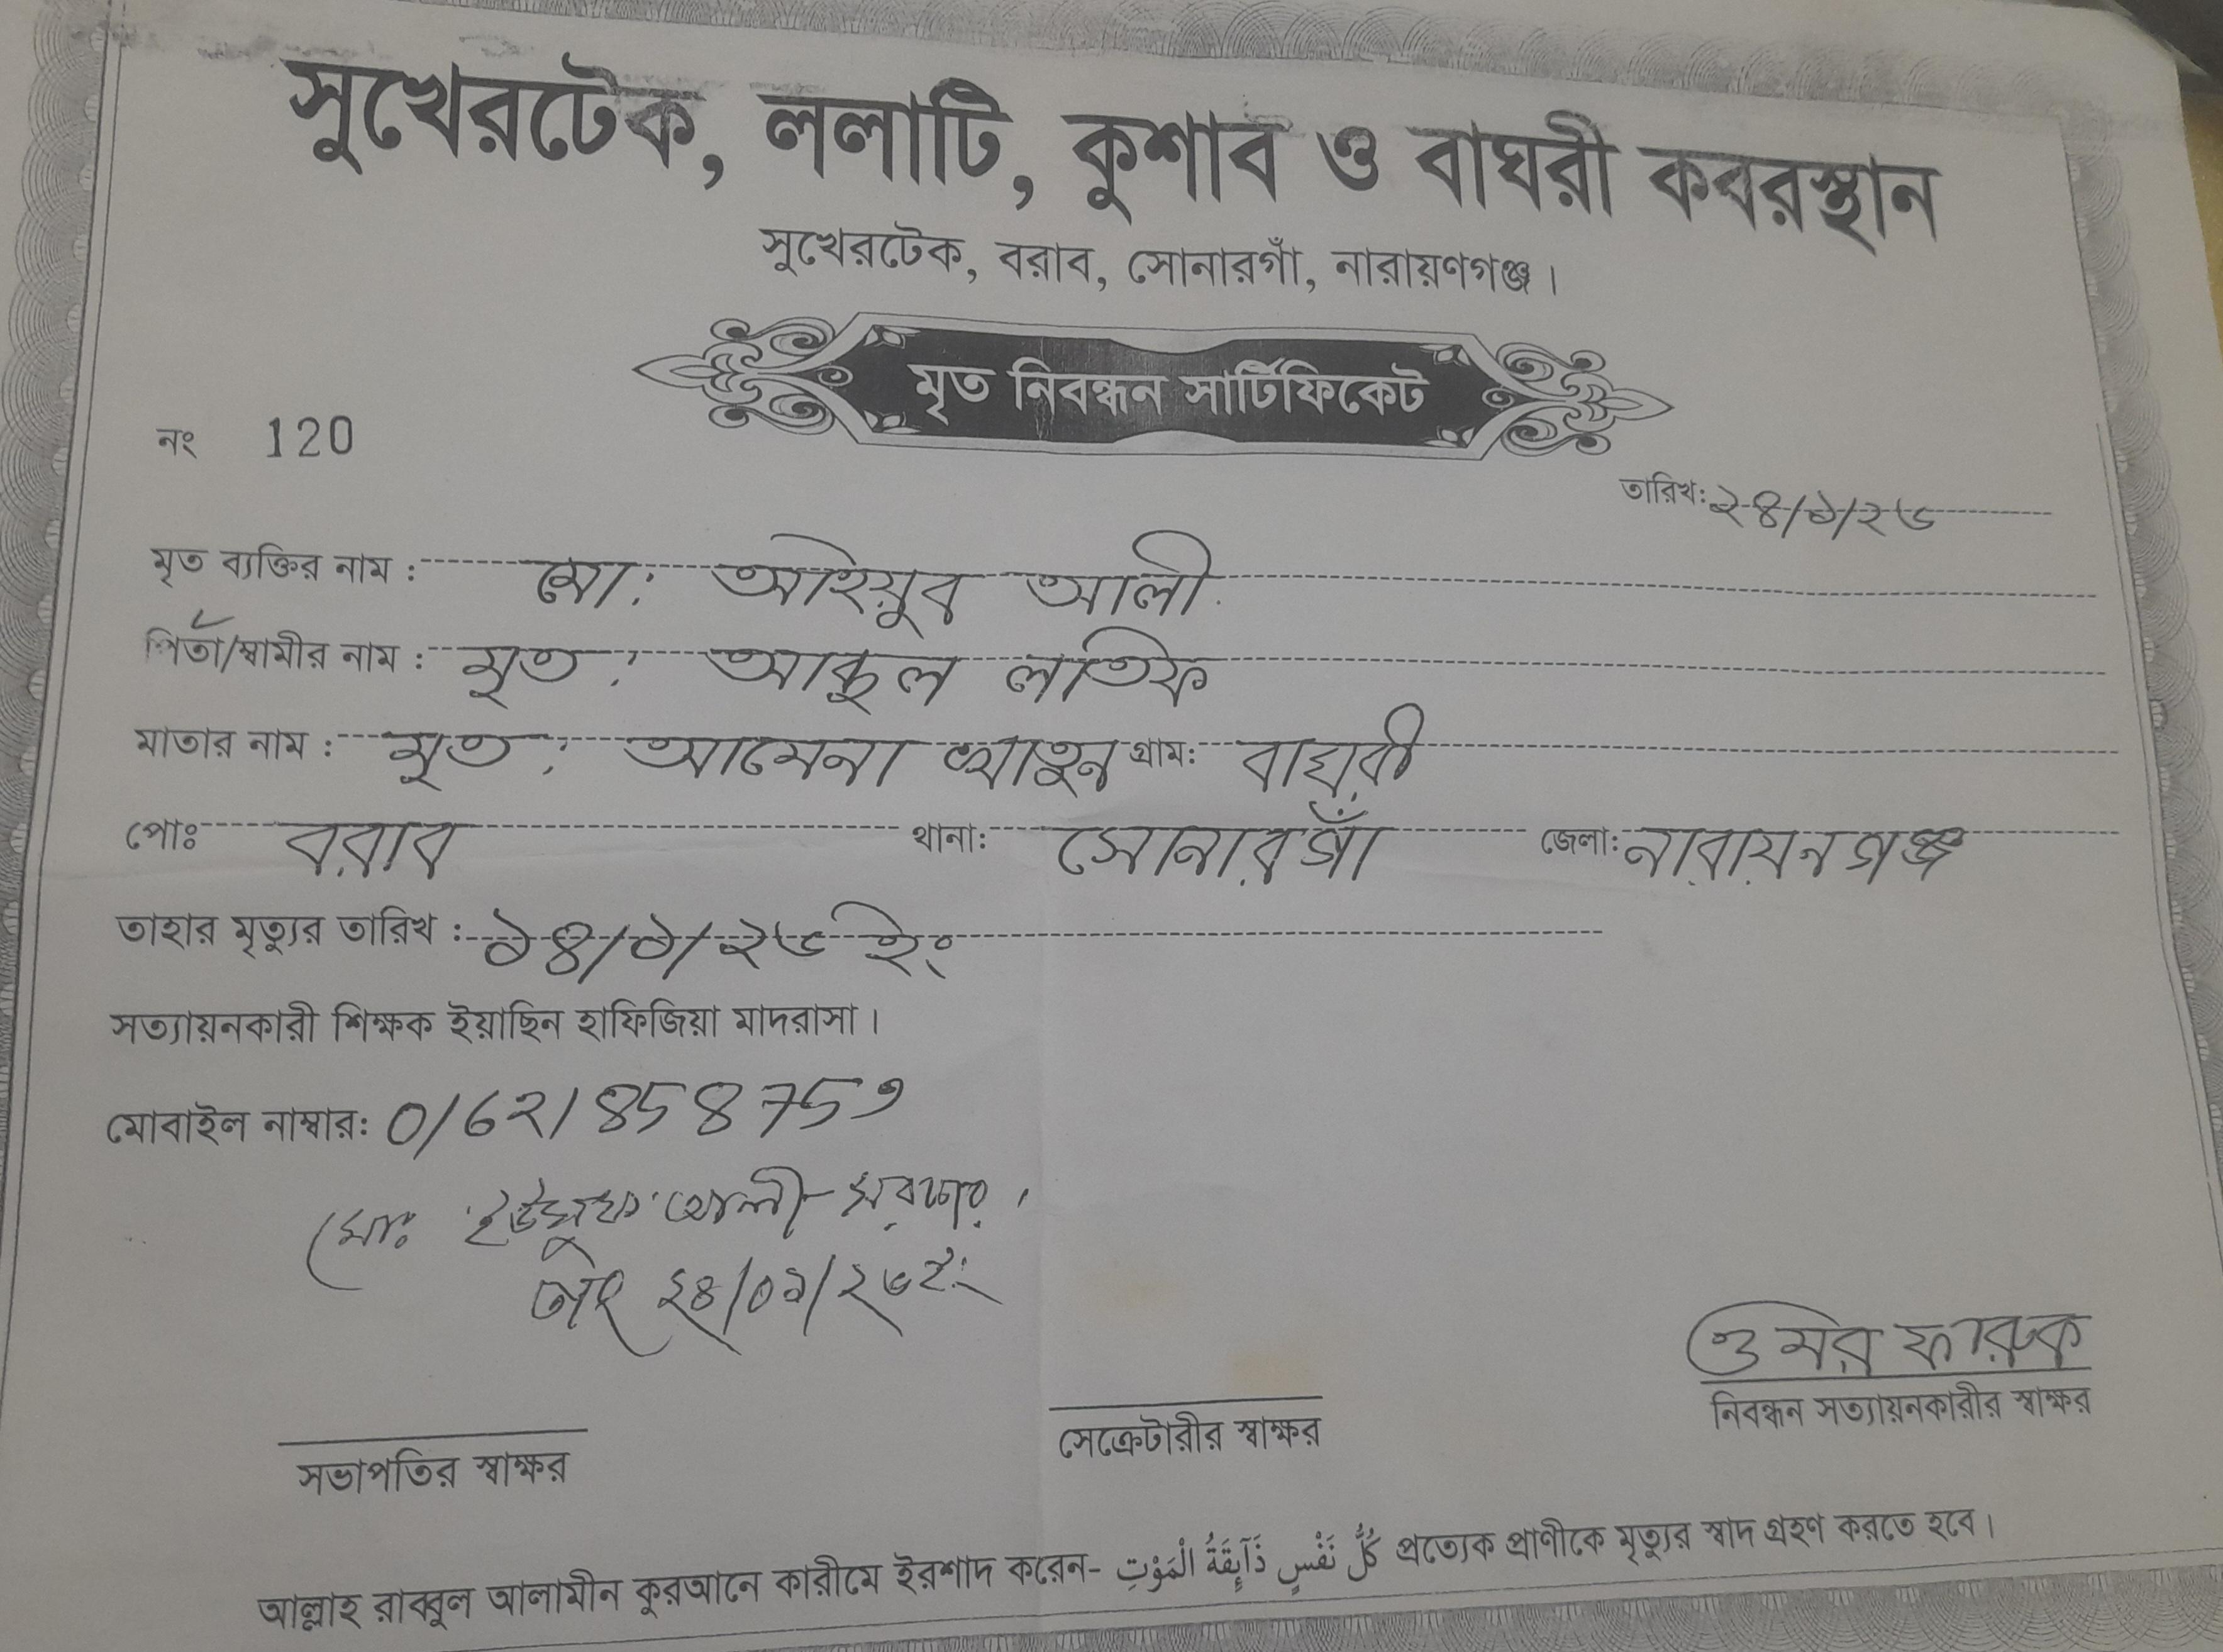 সুখেরটেক, ললাটি, কুশাব ও বাঘরী কবরস্থান
সুখেরটেক, বরাব, সোনারগাঁ, নারায়ণগঞ্জ।
মৃত নিবন্ধন সার্টিফিকেট
নং 120
তারিখ: ২৪/১/২৬
মৃত ব্যক্তির নাম : মো: আইয়ুব আলী
পিতা/স্বামীর নাম : মৃত: আব্দুল লতিফ
মাতার নাম : মৃত: আমেনা খাতুন গ্রাম: বাঘরী
পোঃ বরাব থানা: সোনারগাঁ জেলা: নারায়নগঞ্জ
তাহার মৃত্যুর তারিখ : ১৪/১/২৬ ইং
সত্যায়নকারী শিক্ষক ইয়াছিন হাফিজিয়া মাদরাসা।
মোবাইল নাম্বার:
মোঃ ইউসুফ আলী সরকার
তাং ২৪/০১/২৬ইং
ওমর ফারুক
সভাপতির স্বাক্ষর সেক্রেটারীর স্বাক্ষর নিবন্ধন সত্যায়নকারীর স্বাক্ষর
আল্লাহ রাব্বুল আলামীন কুরআনে কারীমে ইরশাদ করেন- كُلُّ نَفْسٍ ذَآئِقَةُ الْمَوْتِ প্রত্যেক প্রাণীকে মৃত্যুর স্বাদ গ্রহণ করতে হবে।